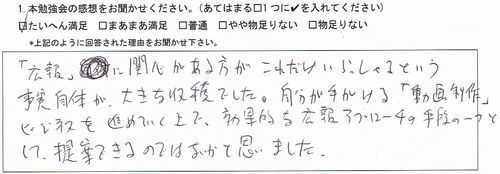 1. 本勉強会の感想をお聞かせください。(あてはまる□1つに✔を入れてください)
☑たいへん満足 □まあまあ満足 □普通 □やや物足りない □物足りない
*上記のように回答された理由をお聞かせ下さい。
「広報」に関心がある方がこれだけいらっしゃるという
事実自体が、大きな収穫でした。自分が手がける「動画制作」
ビジネスを進めていく上で、効果的な広報アプローチの手段の一つと
して、提案できるのではないかと思いました。